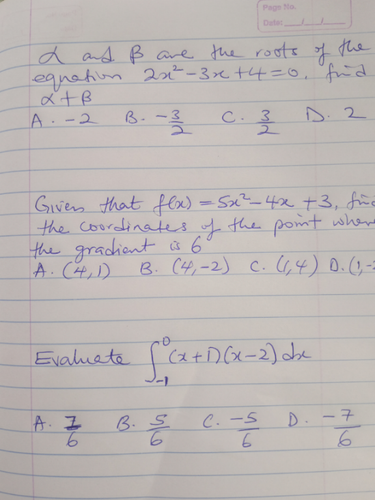 Page No.
Date:
α and β are the roots of the
equation 2x² - 3x + 4 = 0, find
α + β
A. -2 B. -3/2 C. 3/2 D. 2
Given that f(x) = 5x² - 4x + 3, find
the coordinates of the point where
the gradient is 6
A. (4, 1) B. (4, -2) C. (1, 4) D. (1, -2
Evaluate ∫₋₁⁰ (x+1)(x-2) dx
A. 7/6 B. 5/6 C. -5/6 D. -7/6